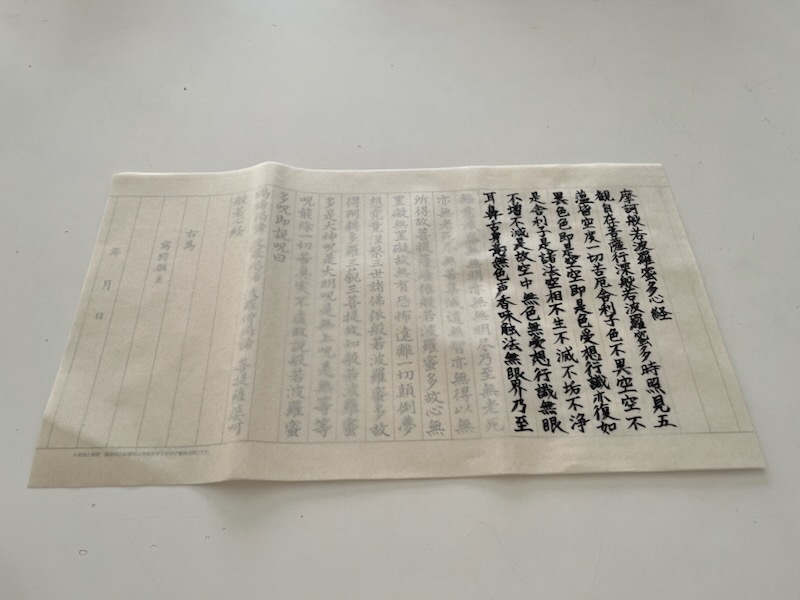 摩訶般若波羅蜜多心経
観自在菩薩行深般若波羅蜜多時照見五
蘊皆空度一切苦厄舎利子色不異空空不
異色色即是空空即是色受想行識亦復如
是舎利子是諸法空相不生不滅不垢不浄
不増不減是故空中無色無受想行識無眼
耳鼻舌身意無色声香味触法無眼界乃至
無意識界無無明亦無無明尽乃至無老死
亦無老死尽無苦集滅道無智亦無得以無
所得故菩提薩埵依般若波羅蜜多故心無
罣礙無罣礙故無有恐怖遠離一切顛倒夢
想究竟涅槃三世諸佛依般若波羅蜜多故
得阿耨多羅三藐三菩提故知般若波羅蜜
多是大神呪是大明呪是無上呪是無等等
呪能除一切苦真実不虚故説般若波羅蜜
多呪即説呪曰
羯諦羯諦波羅羯諦波羅僧羯諦菩提薩婆訶
般若心経
右為
寫経願主
年月日